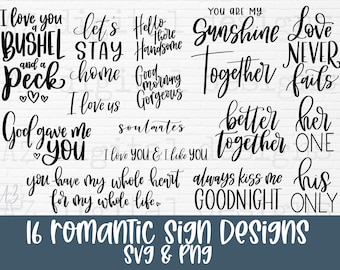 I love you
a
BUSHEL
and a
Peck
let's
STAY
home
I love us
Hello
there
Handsome
Good
morning
Gorgeous
YOU ARE MY
Sunshine
Together
LOVE
NEVER
fails
God gave me
YOU
soulmates
I love YOU & I like YOU
better
together
her
ONE
you have my whole heart
for my whole life
always kiss me
GOODNIGHT
his
ONLY
16 ROMANTIC SIGN DESIGNS
SVG & PNG